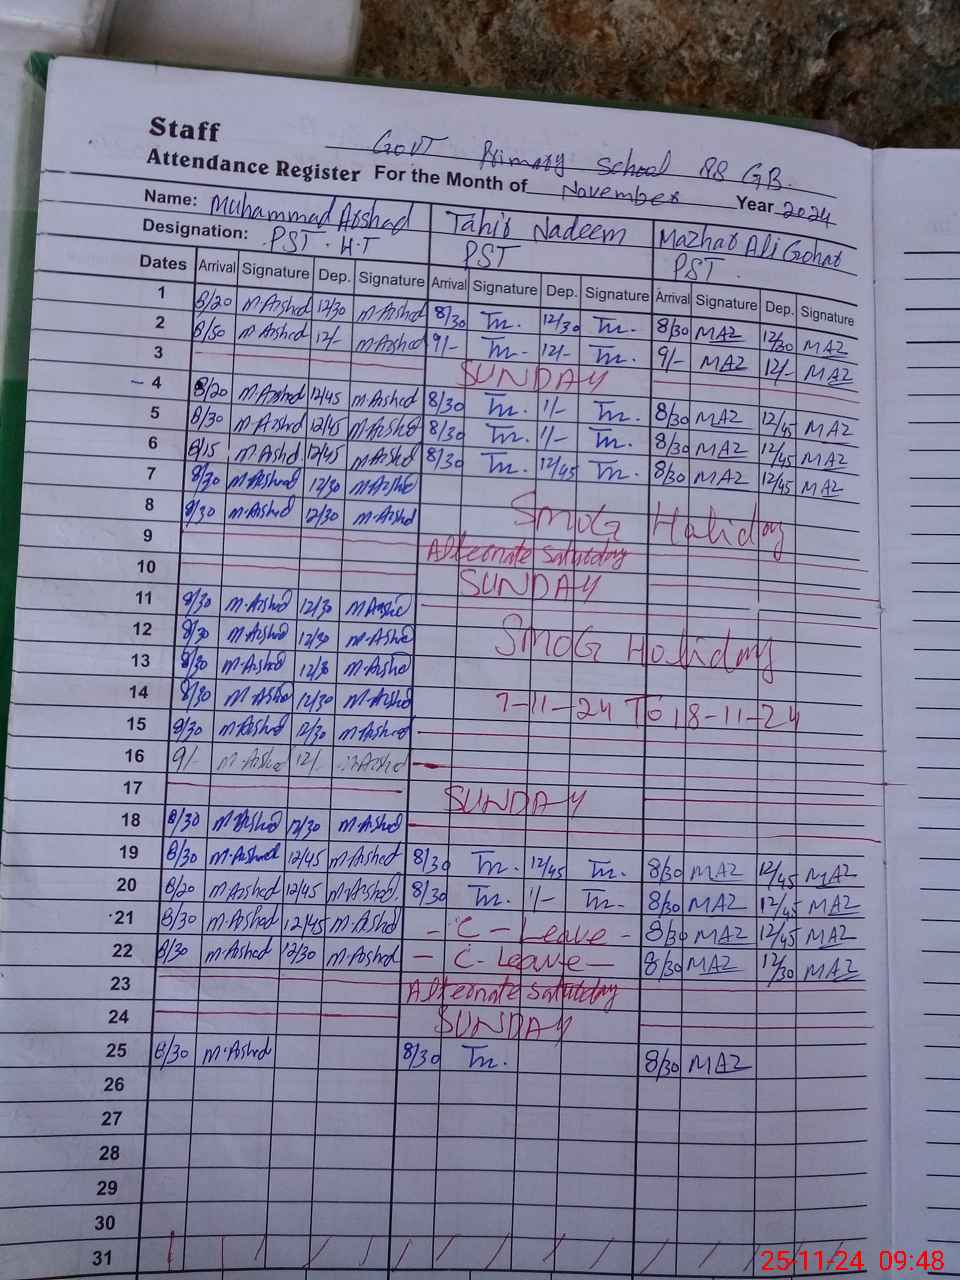 Staff
Govt Primary School 88 GB.
Attendance Register For the Month of November Year 2024
Name: Muhammad Arshad Tahir Nadeem Mazhar Ali Gohar
Designation: PST. H.T PST PST.
Dates Arrival Signature Dep. Signature Arrival Signature Dep. Signature Arrival Signature Dep. Signature
1 8/20 M.Arshed 12/30 M.Arshed 8/30 Tn. 12/30 Tn. 8/30 MAZ 12/30 MAZ
2 8/50 M.Arshed 12/- M.Arshed 9/- Tn. 12/- Tn. 9/- MAZ 12/- MAZ
3 SUNDAY
4 8/20 M.Arshed 12/45 M.Arshed 8/30 Tn. 1/- Tn. 8/30 MAZ 12/45 MAZ
5 8/30 M.Arshed 12/45 M.Arshed 8/30 Tn. 1/- Tn. 8/30 MAZ 12/45 MAZ
6 8/15 M.Ashd 12/45 M.Arshd 8/30 Tn. 12/45 Tn. 8/30 MAZ 12/45 MAZ
7 8/30 M.Arshed 12/30 M.Arshd
8 8/30 M.Arshd 12/30 M.Arshd SMOG Holiday
9 Alternate Saturday
10 SUNDAY
11 8/30 M.Arshed 12/30 M.Arshd
12 8/30 M.Arshed 12/30 M.Ashd SMOG Holiday
13 8/30 M.Arshed 12/30 M.Arshd
14 8/30 M.Ashd 12/30 M.Arshd 7-11-24 TO 18-11-24
15 8/30 M.Arshed 12/30 M.Arshd
16 9/- M.Arshd 12/- M.Arshd
17 SUNDAY
18 8/30 M.Arshed 12/30 M.Arshed
19 8/30 M.Arshed 12/45 M.Arshed 8/30 Tn. 12/45 Tn. 8/30 MAZ 12/45 MAZ
20 8/20 M.Arshed 12/45 M.Arshed. 8/30 Tn. 1/- Tn. 8/30 MAZ 12/45 MAZ
21 8/30 M.Arshed 12/45 M.Ashed - C - Leave - 8/30 MAZ 12/45 MAZ
22 8/30 M.Arshed 12/30 M.Arshed - C. Leave - 8/30 MAZ 12/30 MAZ
23 Alternate Saturday
24 SUNDAY
25 8/30 M.Arshed 8/30 Tn. 8/30 MAZ
26
27
28
29
30
31
25-11-24 09:48